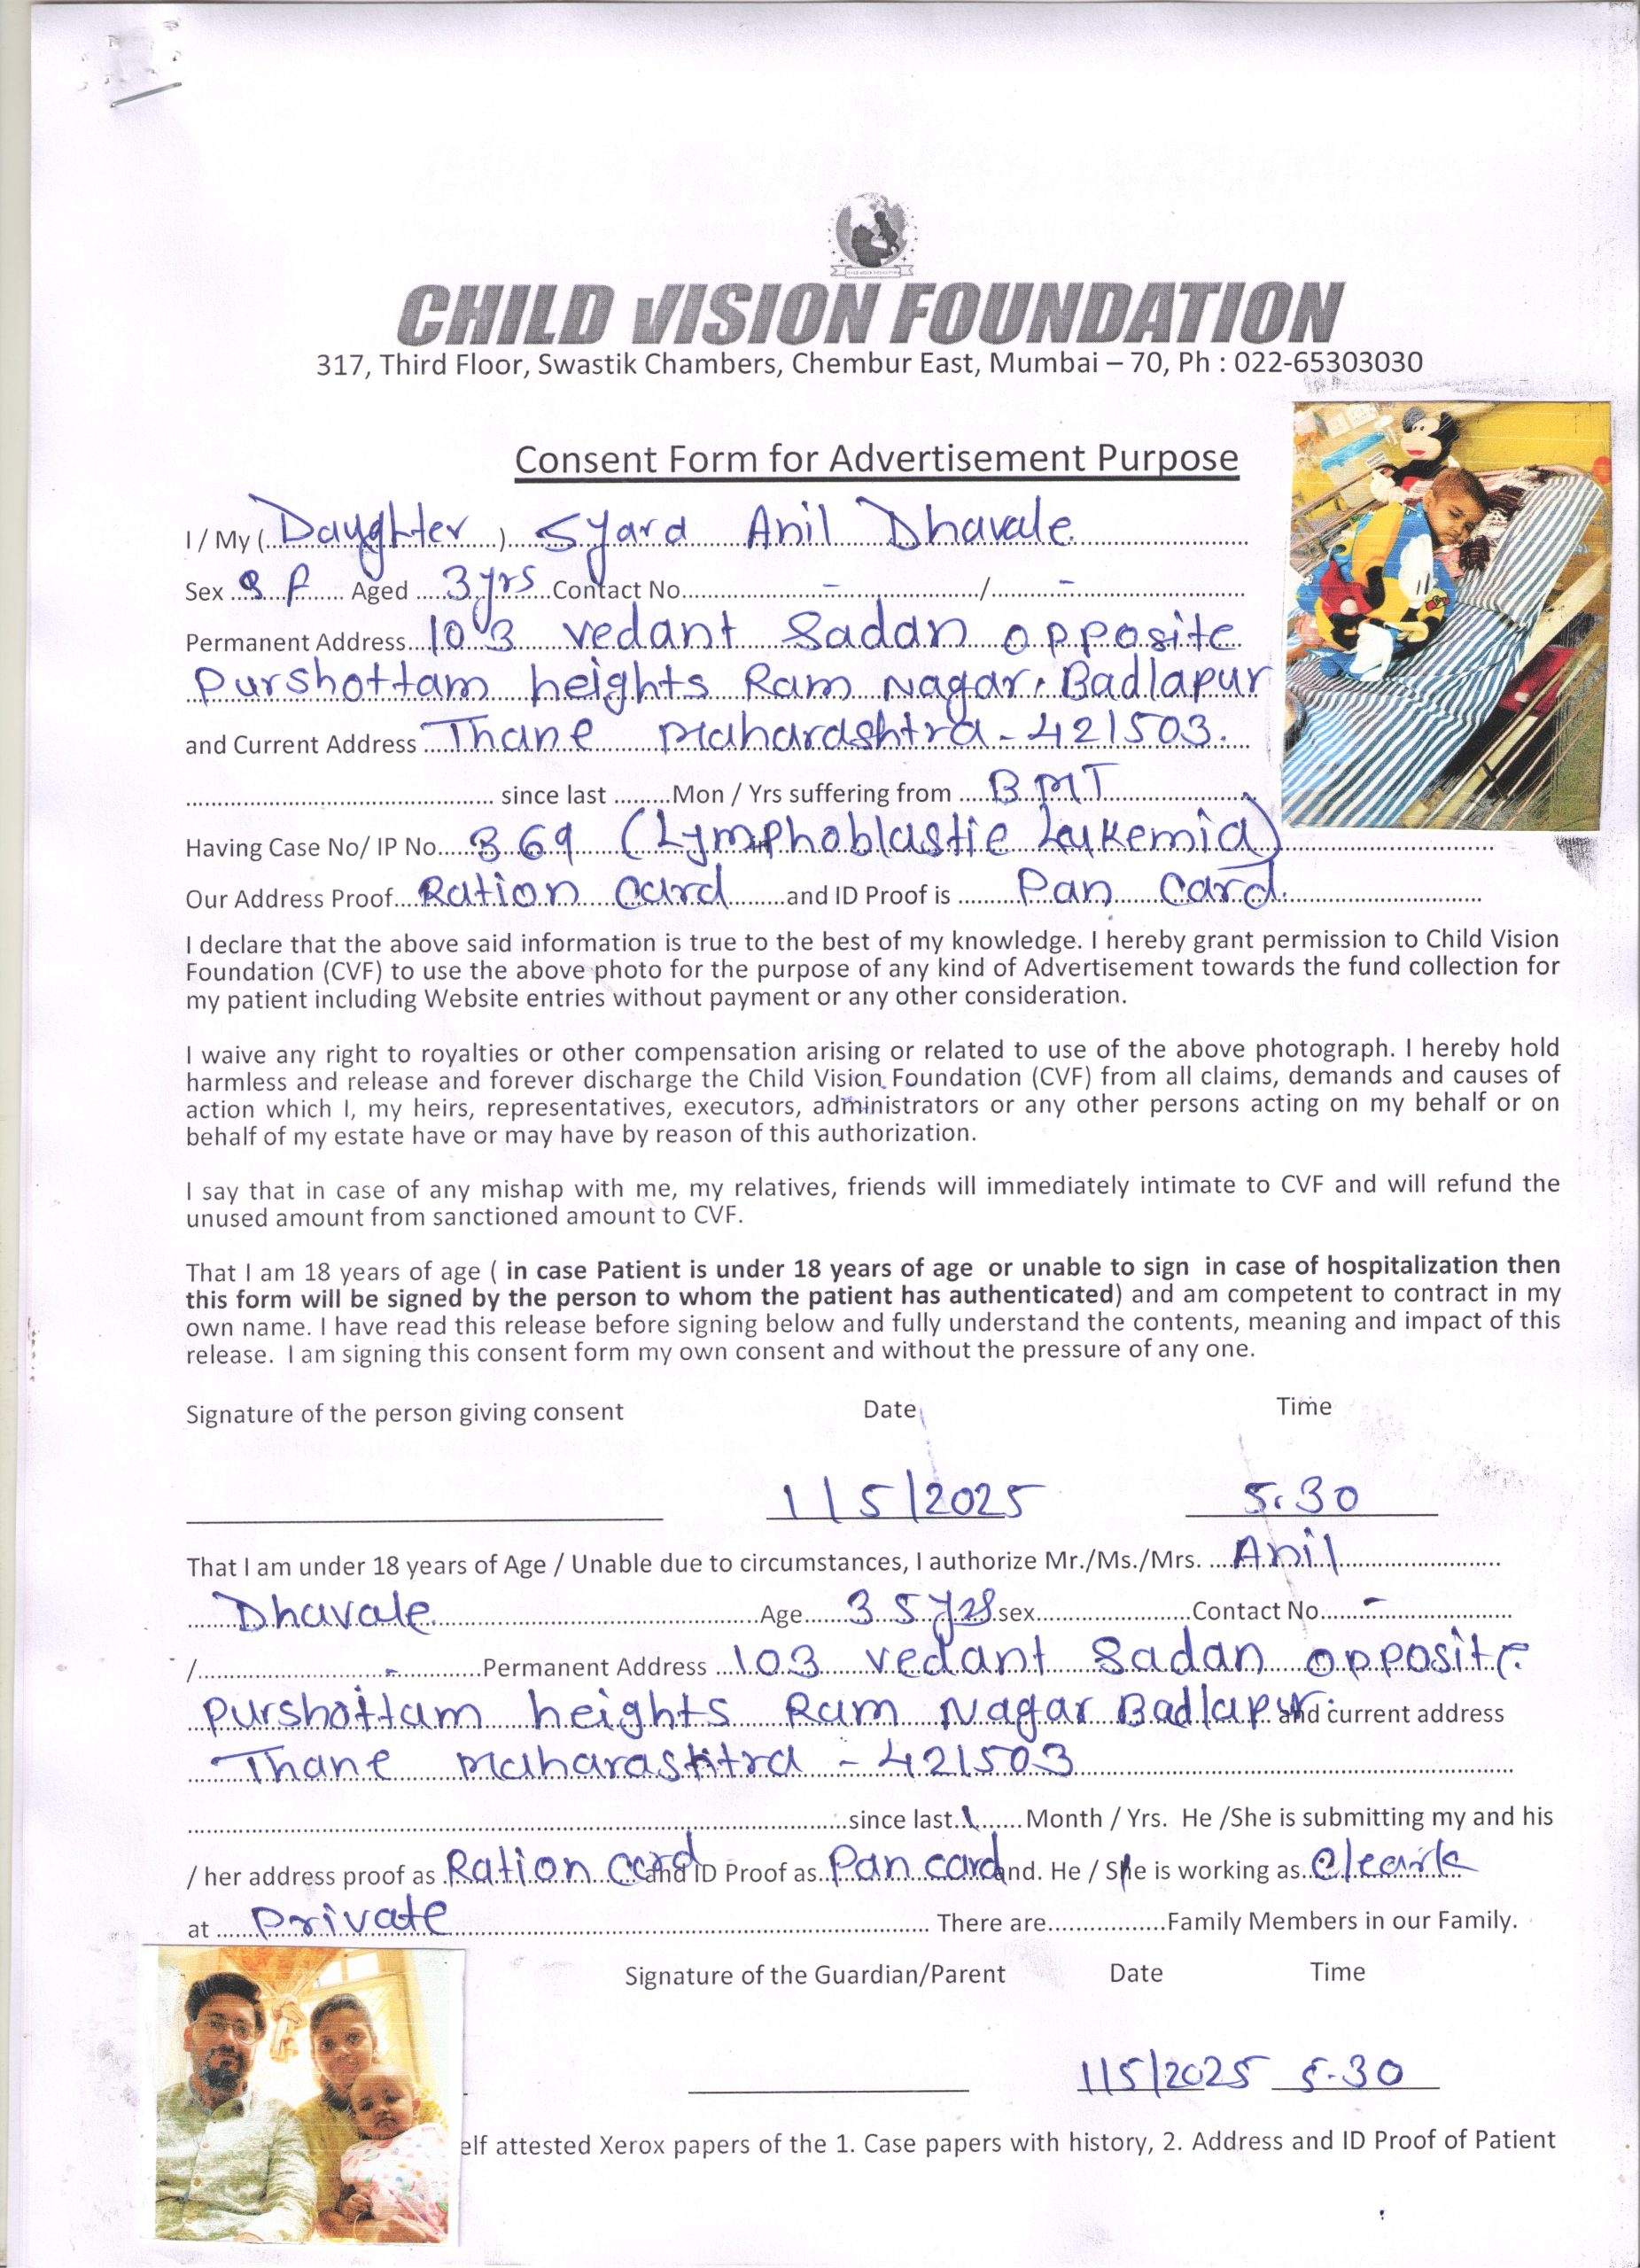 CHILD VISION FOUNDATION
317, Third Floor, Swastik Chambers, Chembur East, Mumbai – 70, Ph : 022-65303030
Consent Form for Advertisement Purpose
I / My ( Daughter ) Syard Anil Dhavale
Sex F Aged 3 yrs Contact No. - / -
Permanent Address 103 vedant Sadan opposite
Purshottam heights Ram Nagar. Badlapur
and Current Address Thane Maharashtra - 421503.
since last Mon / Yrs suffering from BMT
Having Case No/ IP No. 369 (Lymphoblastic Leukemia)
Our Address Proof Ration Card and ID Proof is Pan Card.
I declare that the above said information is true to the best of my knowledge. I hereby grant permission to Child Vision
Foundation (CVF) to use the above photo for the purpose of any kind of Advertisement towards the fund collection for
my patient including Website entries without payment or any other consideration.
I waive any right to royalties or other compensation arising or related to use of the above photograph. I hereby hold
harmless and release and forever discharge the Child Vision Foundation (CVF) from all claims, demands and causes of
action which I, my heirs, representatives, executors, administrators or any other persons acting on my behalf or on
behalf of my estate have or may have by reason of this authorization.
I say that in case of any mishap with me, my relatives, friends will immediately intimate to CVF and will refund the
unused amount from sanctioned amount to CVF.
That I am 18 years of age ( in case Patient is under 18 years of age or unable to sign in case of hospitalization then
this form will be signed by the person to whom the patient has authenticated) and am competent to contract in my
own name. I have read this release before signing below and fully understand the contents, meaning and impact of this
release. I am signing this consent form my own consent and without the pressure of any one.
Signature of the person giving consent Date Time
1/5/2025 5.30
That I am under 18 years of Age / Unable due to circumstances, I authorize Mr./Ms./Mrs. Anil
Dhavale Age 35 yrs sex Contact No. -
/ - Permanent Address 103 vedant Sadan opposite
Purshottam heights Ram Nagar Badlapur and current address
Thane Maharashtra - 421503
since last 1 Month / Yrs. He /She is submitting my and his
/ her address proof as Ration Card and ID Proof as Pan card and. He / She is working as Cleark
at Private There are Family Members in our Family.
Signature of the Guardian/Parent Date Time
1/5/2025 5.30
elf attested Xerox papers of the 1. Case papers with history, 2. Address and ID Proof of Patient